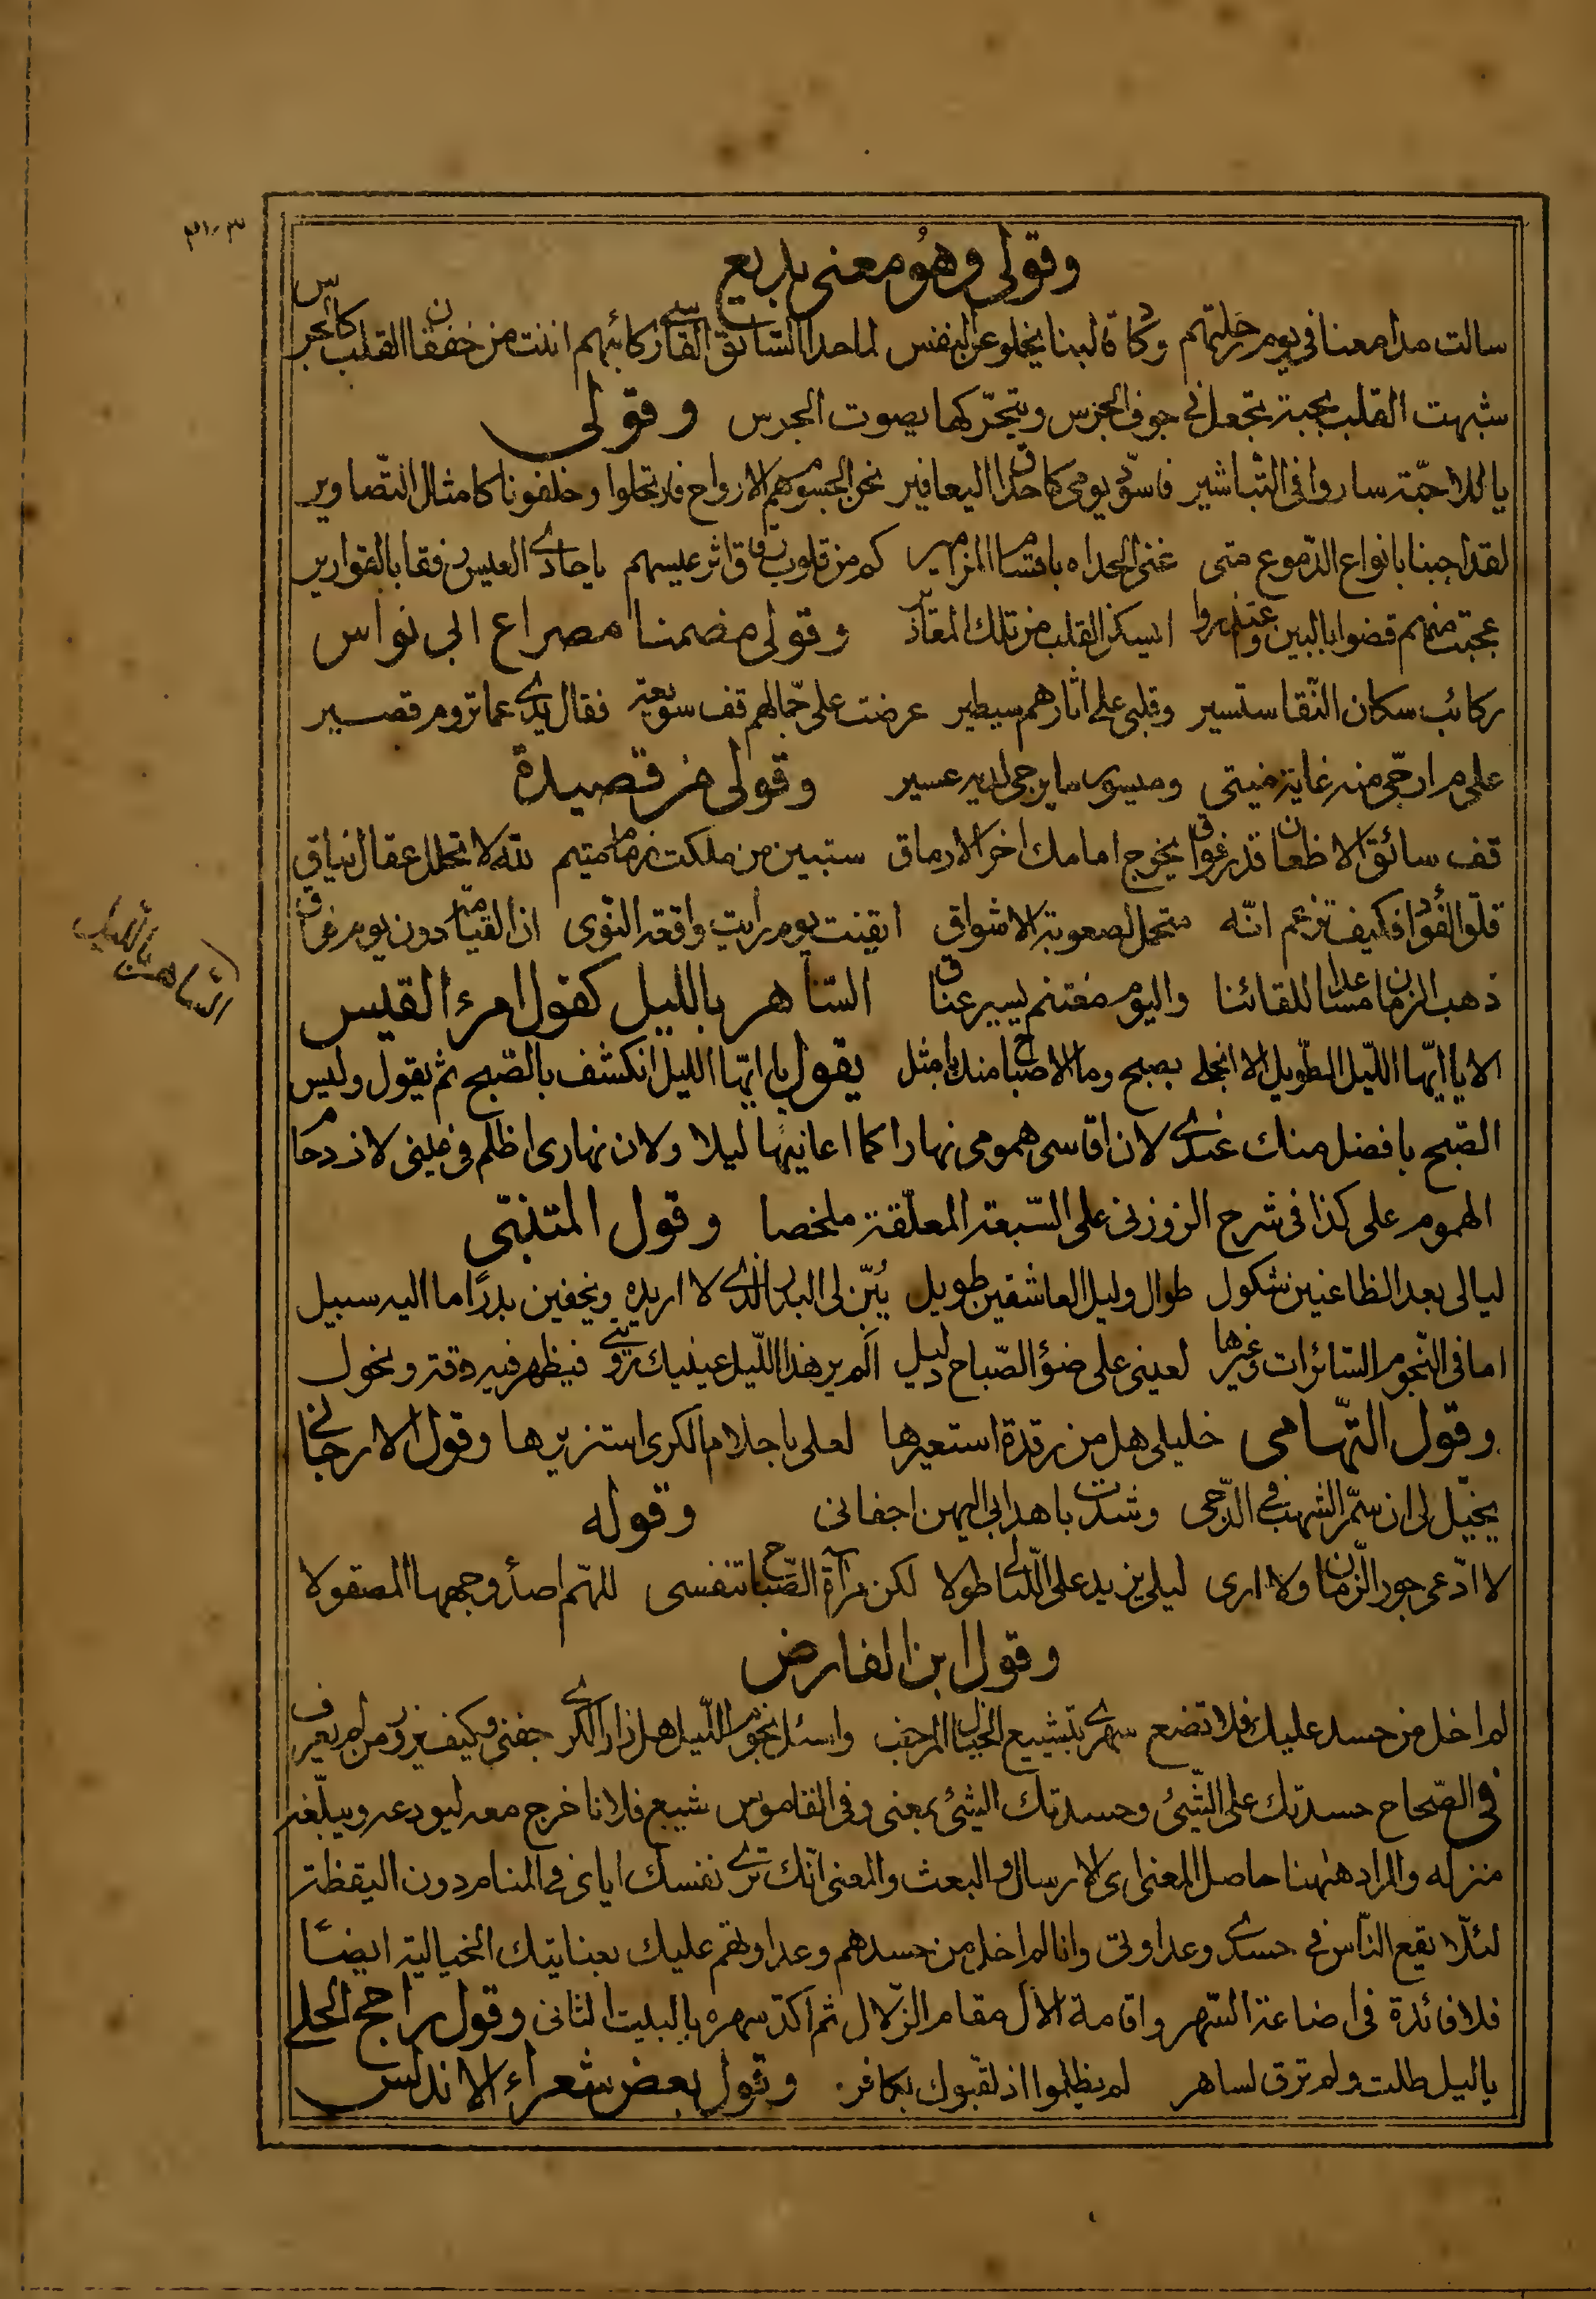 ٢٠٣
وقولي وهو معنى بديع
سالت مدامعنا في يوم رحلتهم وكاد لبنا يخلو عن النفس لما حدا السائق القاسي ركائبهم اننت من خفقان القلب كالجرس
شبهت القلب بحبة تجعل في جوف الجرس ويتحرّكها يصوت الجرس وقولي
يا للاحبّة ساروا في التباشير فاسودّ يومي كاحداق اليعافير نحن الجسوم هم الارواح فارتحلوا وخلفونا كامثال التّصاوير
لقد اجبنا بانواع الدّموع متى غنى الحداه باقسام المزامير كم من قلوب رقاق اثر عيسهم يا حادي العيس رفقا بالقوارير
عجبت منهم قضوا بالبين واعتذروا ايسكن القلب من تلك المعاذير وقولي مضمنا مصراع ابي نواس
ركائب سكان النّقا ستسير وقلبي على اثارهم سيطير عرضت على جمّالهم قف سويعة فقال يدي عما تروم قصير
على م ارجّي منه غاية منيتي وميسور ما يرجى لديه عسير وقولي من قصيدة
قف سائق الاظعان قد رغوا يخرج امامك اخر الارماق ستبين من ملكت زمام متيم لله لا تحلل عقال نياق
قلّوا الفؤاد فكيف تزعم انّه متحمل لصعوبة الاشواق ايقنت يوم رايت واقعة النّوى ان القيامة دون يوم فراق
ذهب الزمان مساعدا للقائنا واليوم مغتنم يسير عناق السّاهر بالليل كقول امرء القيس
السّاهر باللّيل
الا يا ايّها اللّيل الطّويل الا انجلي بصبح وما الاصباح منك بامثل يقول يا ايّها الليل انكشف بالصّبح ثم يقول وليس
الصّبح بافضل منك عندي لان اقاسي همومي نهارا كما اعانيها ليلا ولان نهاري اظلم في عيني لازدحام
الهموم على كذا في شرح الزوزني على السّبعة المعلّقة ملخصا وقول المتنبّي
ليالي بعد الظاعنين شكول طوال وليل العاشقين طويل يُبِنّ لي البدر الذي لا اريده ويخفين بدرًا ما اليه سبيل
اما في النّجوم السّائرات وغيرها لعيني على ضوء الصّباح دليل الم ير هذا اللّيل عينيك رؤيتي فيظهر فيه دقة ونحول
وقول التّهامي خليلي هل من رقدة استعيرها لعلي باحلام الكرى استزيرها وقول الارجاني
يخيّل لي ان سمّر الشهب في الدّجى وشدّت باهدابي اليهن اجفاني وقوله
لا ادّعي جور الزّمان ولا ارى ليلي يزيد على اللّيالي طولا لكن مرآة الصّباح تنفسي للهّم اصدأ وجهها المصقولا
وقول ابن الفارض
لم اخل من حسد عليك فلا تضع سهري بتشييع الخيال المرجف واسئل نجوم اللّيل هل زار الكرى جفني وكيف يزور من لم يعرف
في الصّحاح حسدتك على الشّئ وحسدتك الشئ بمعنى وفي القاموس شيع فلانا خرج معه ليودعه ويبلّغه
منزله والمراد ههنا حاصل المعنى اي الارسال والبعث والمعنى انّك تري نفسك اياي في المنام دون اليقظة
لئلّا يقع النّاس في حسدي وعداوتي وانا لم اخل من حسدهم وعداوتهم عليك بعنايتك الخيالية ايضًا
فلا فائدة في اضاعة السّهر واقامة الآل مقام الزّلال ثم اكّد سهره بالبيت الثاني وقول راجح الحلي
يا ليل طلت ولم ترق لساهر لم يظلموا اذ لقبوك بكافر وقول بعض شعراء الاندلس